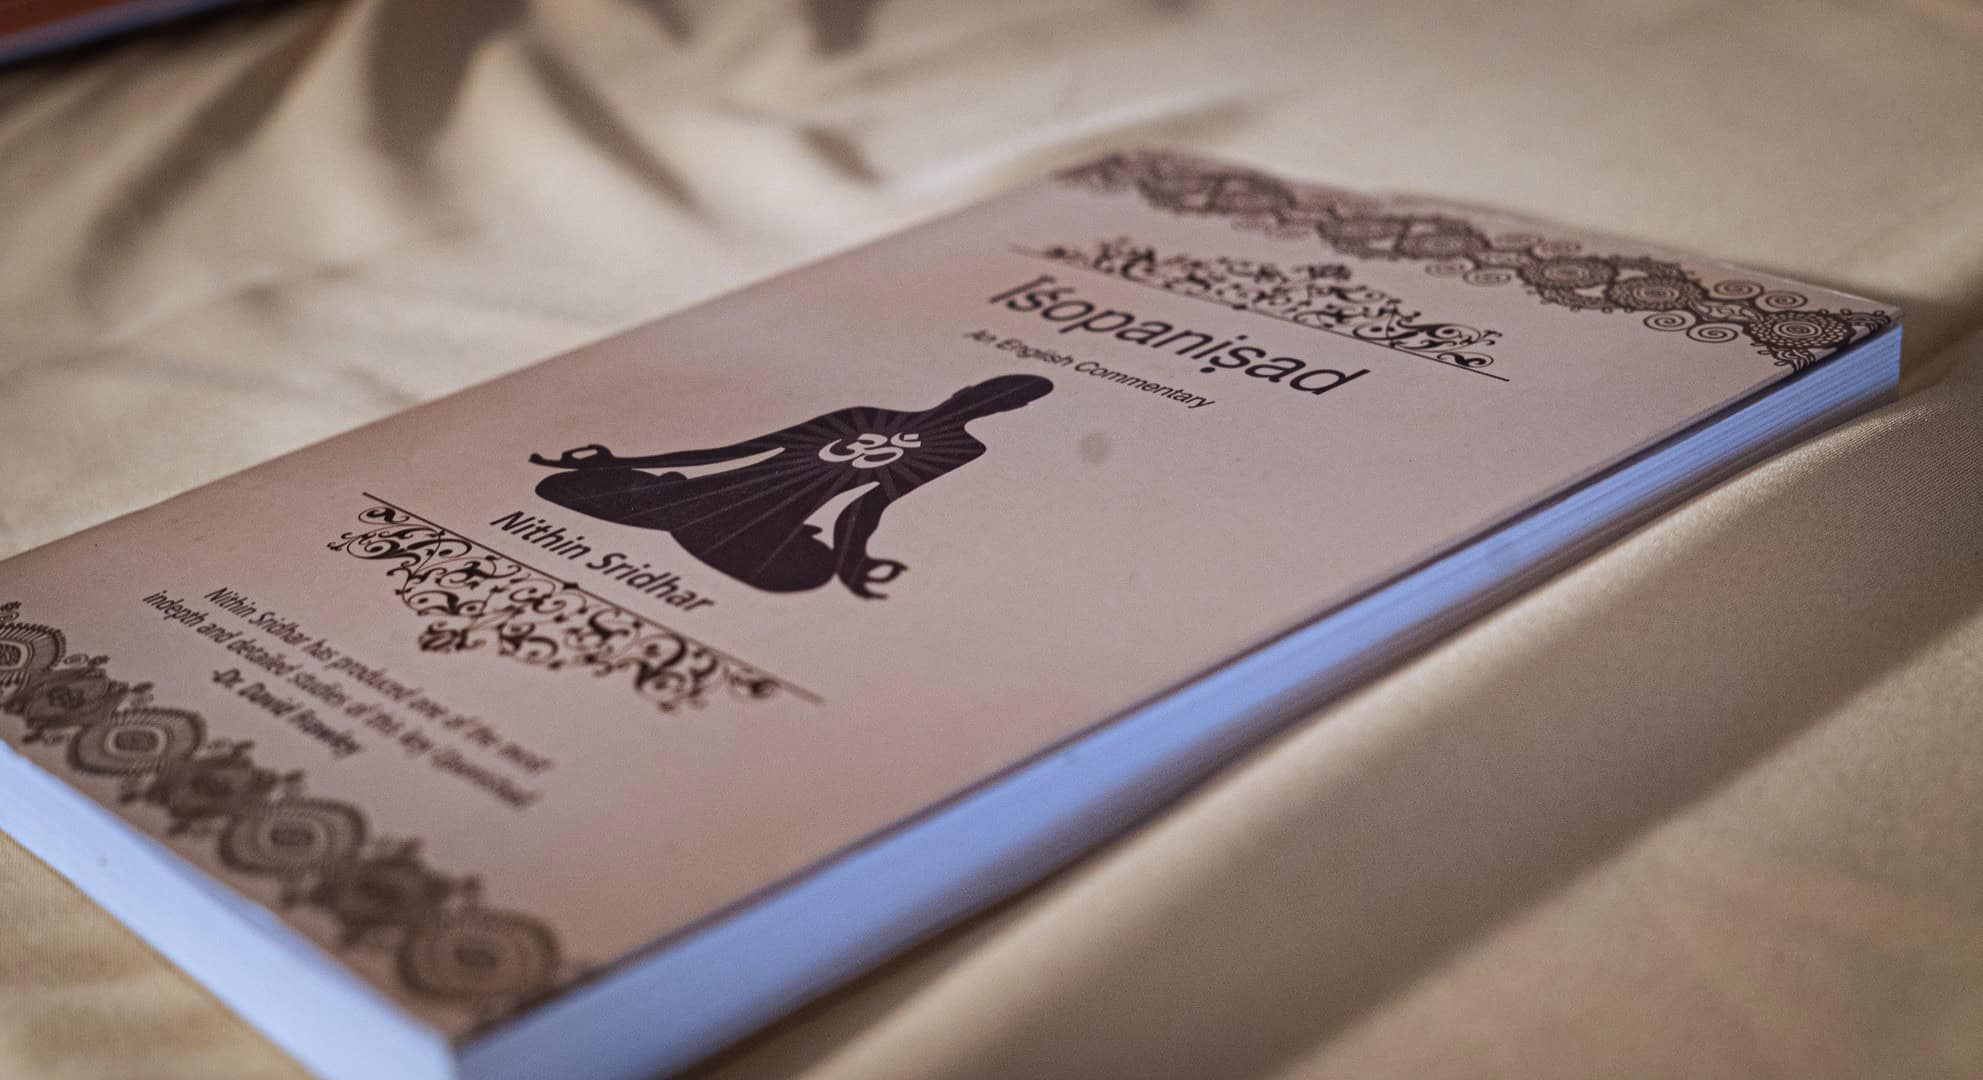 Īśopaniṣad
An English Commentary
ॐ
Nithin Sridhar
Nithin Sridhar has produced one of the most
indepth and detailed studies of this key Upanishad
-Dr. David Frawley